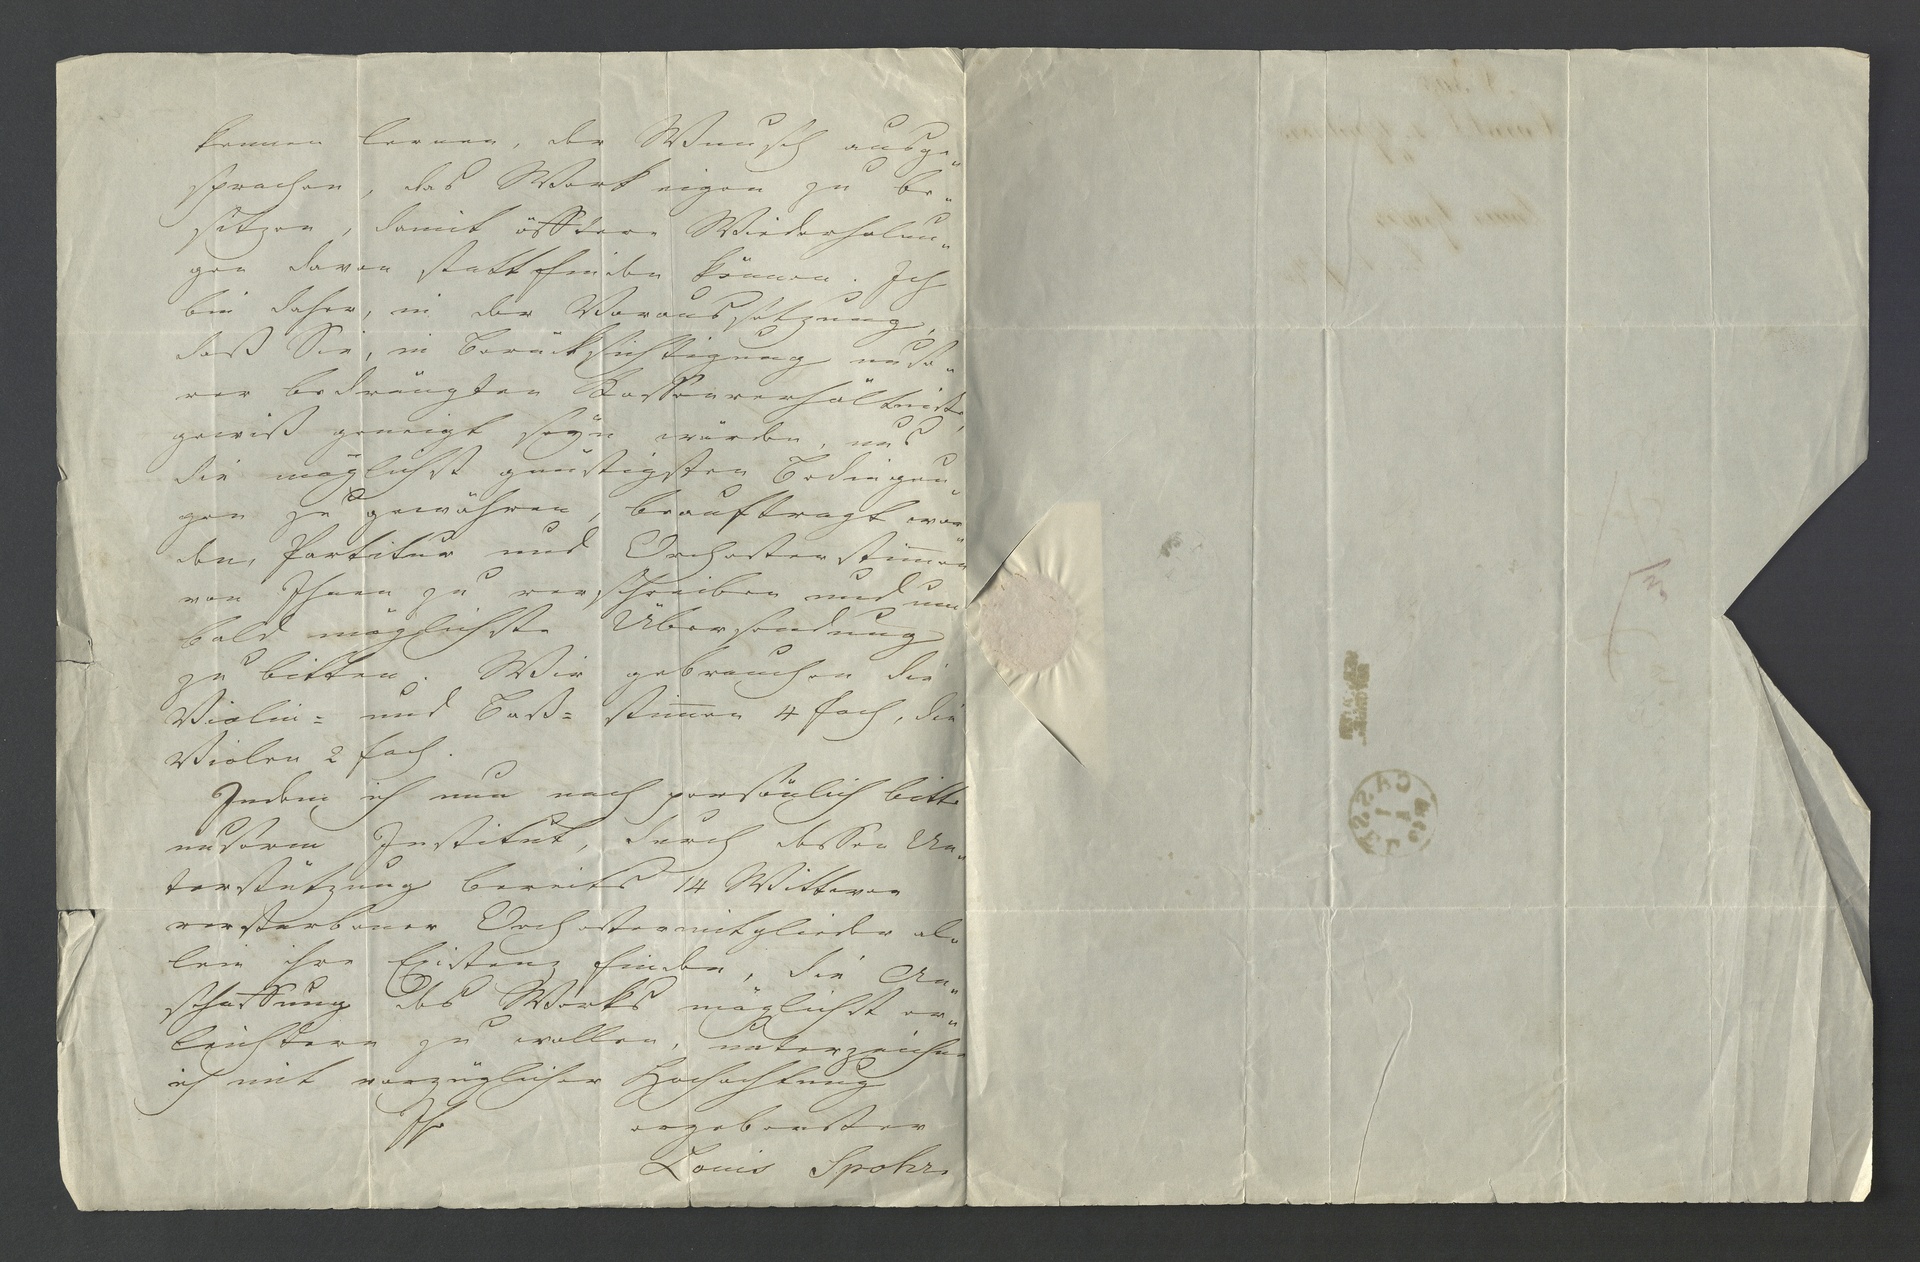 kennen lernen, der Wunsch ausge-
sprochen, das Werk eigen zu be-
sitzen, damit öfftere Wiederholun-
gen davon stattfinden können. Ich
bin daher, in der Voraussetzung,
daß Sie, in Berücksichtigung unse-
rer bedrängten Kassenverhältnisse,
gewiß geneigt seyn würden, uns
die möglichst günstigsten Bedingun-
gen zu gewähren, beauftragt wor-
den, Partitur und Orchesterstimmen
von Ihnen zu verschreiben und um
bald möglichste Übersendung
zu bitten. Wir gebrauchen die
Violin= und Baß= stimmen 4 fach, die
Violen 2 fach.
Indem ich nun noch persönlich bitte
unserm Institut, durch dessen Un-
terstützung bereits 14 Wittwen
verstorbener Orchestermitglieder al-
lein ihre Existenz finden, die An-
schaffung des Werks möglichst er-
leichtern zu wollen, unterzeichne
ich mit vorzüglicher Hochachtung
Ihr ergebenster
Louis Spohr.
CASSEL